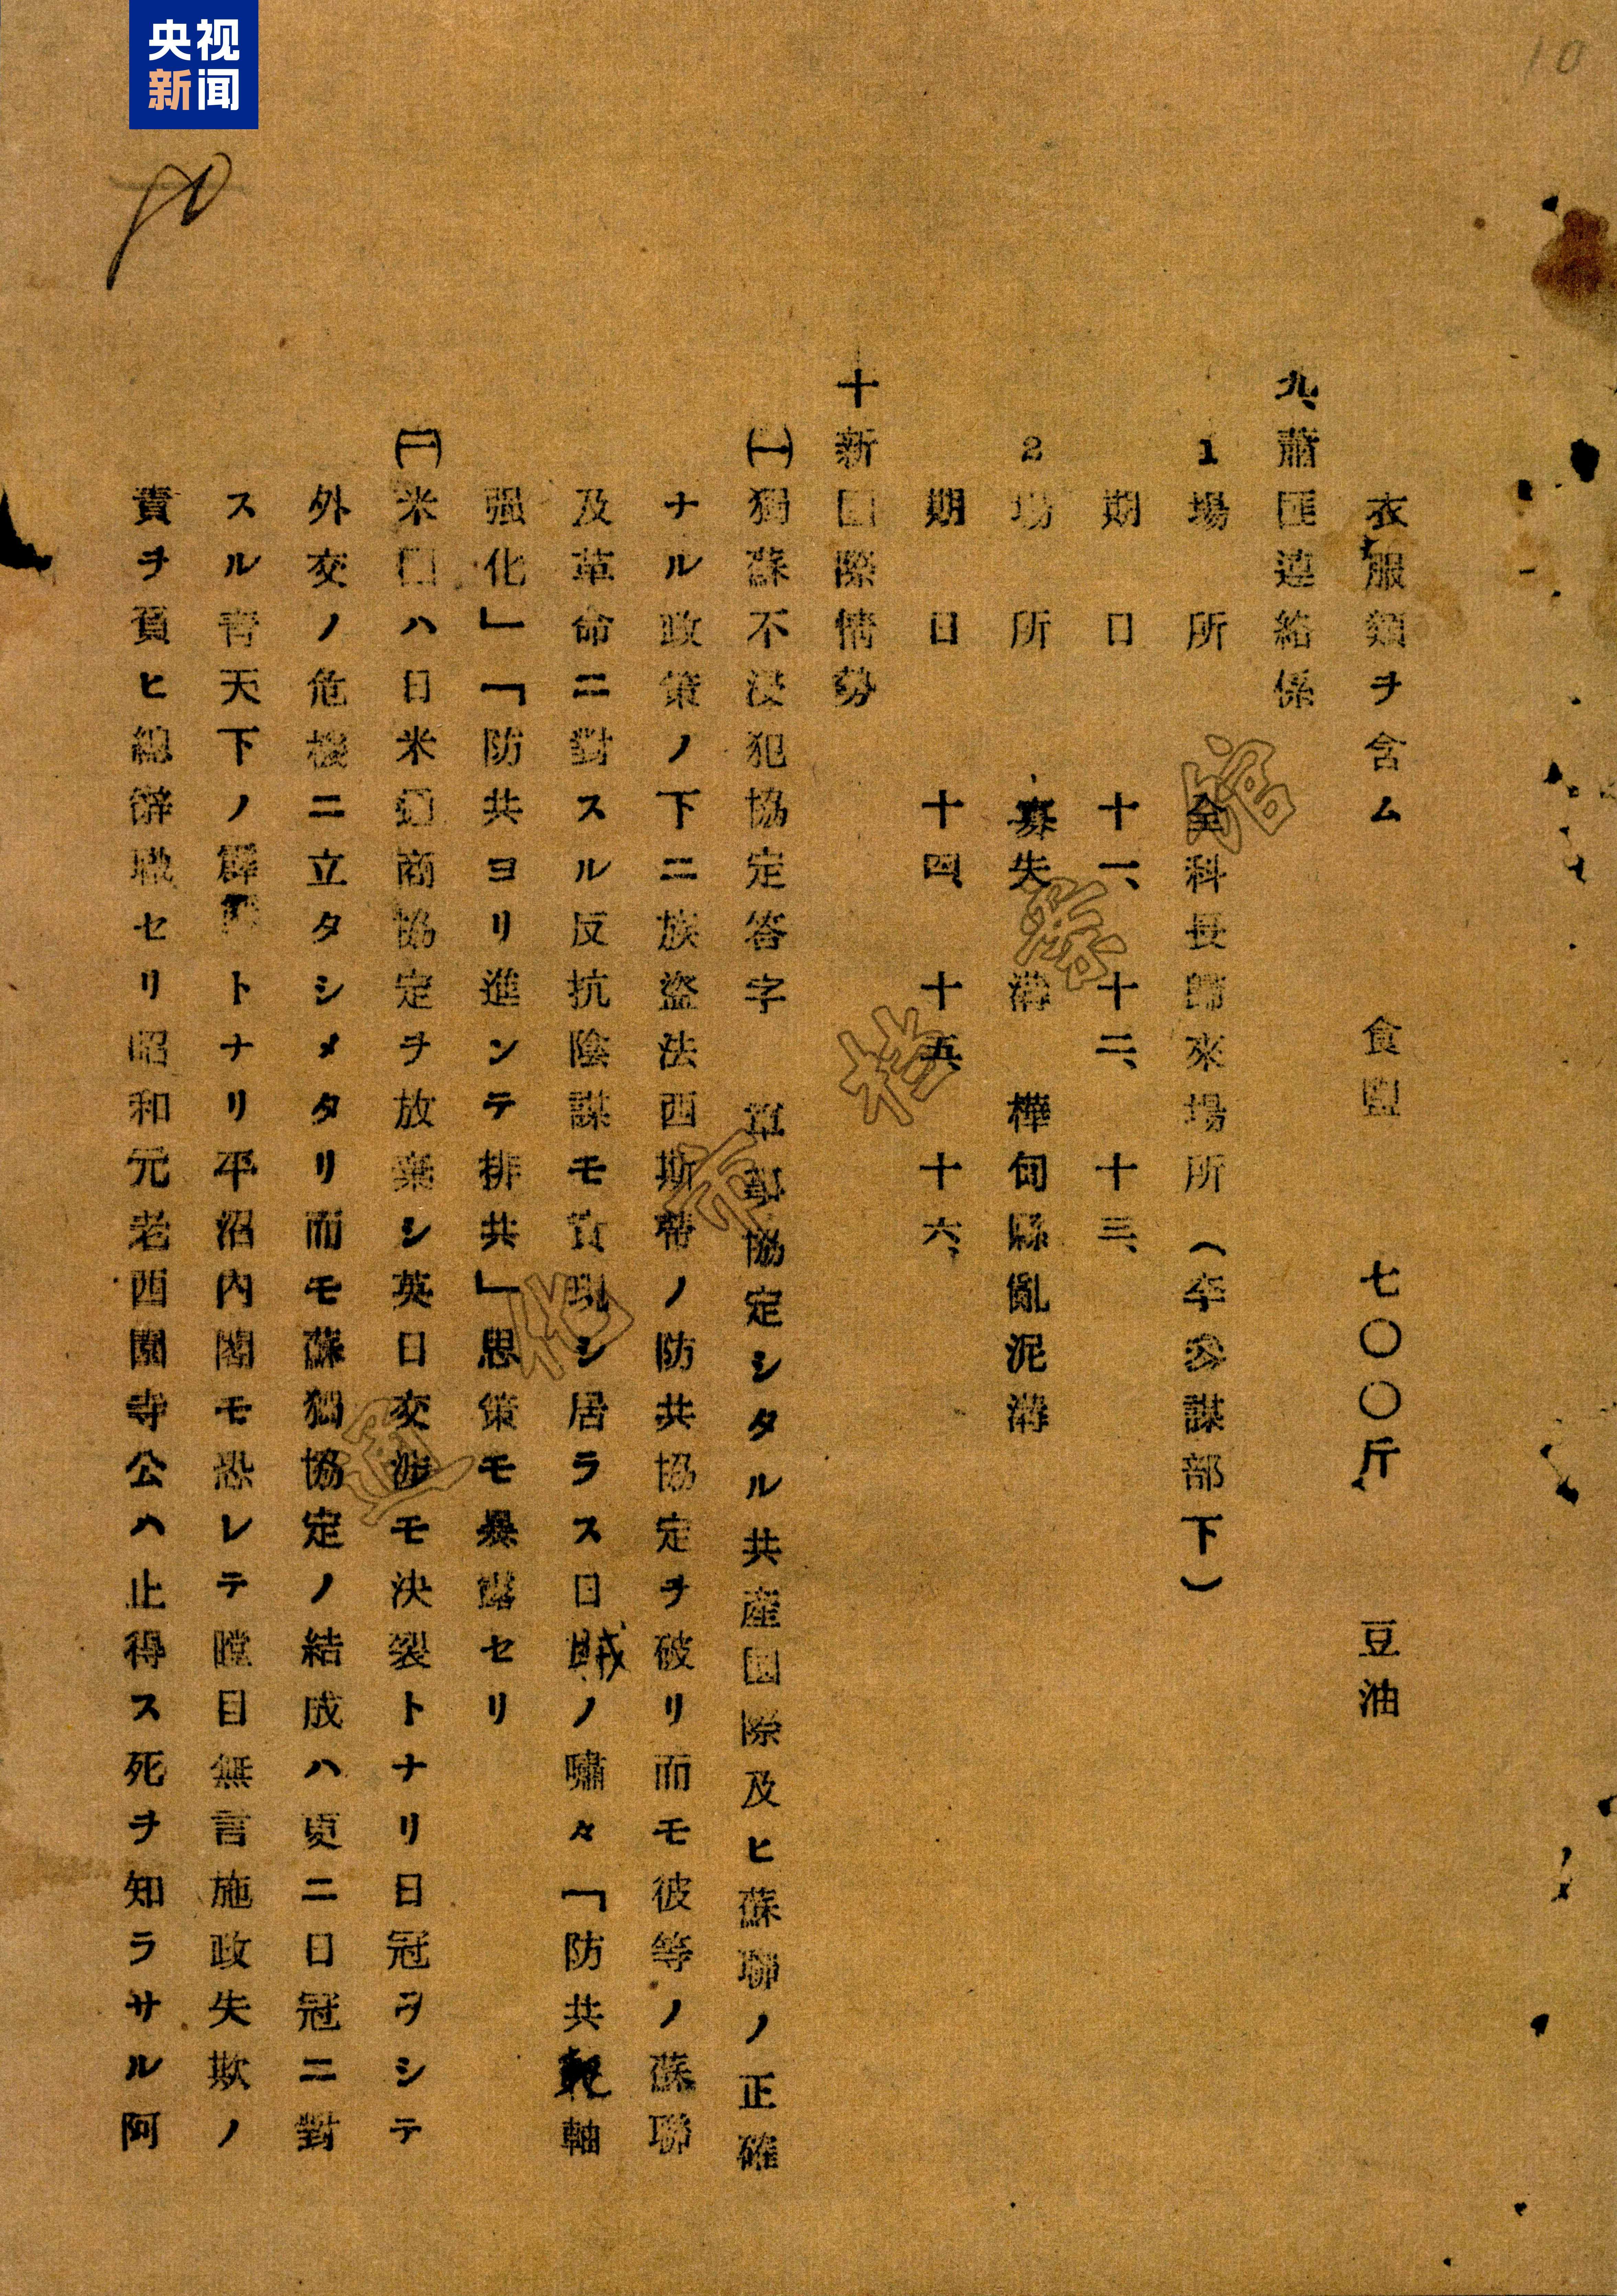 央视
新闻
10
90
衣服類ヲ含ム 食塩 七〇〇斤 豆油
九、蕭匪連絡係
1 場所 全科長歸來場所（李參謀部下）
期日 十一、十二、十三、
2 場所 寡失溝 樺甸縣亂泥溝
期日 十四、十五、十六、
十 新国際情勢
㈠ 獨蘇不浸犯協定答字 軍事協定シタル共産国際及ヒ蘇聯ノ正確
ナル政策ノ下ニ族盗法西斯帶ノ防共協定ヲ破リ而モ彼等ノ蘇聯
及革命ニ對スル反抗陰謀モ實現シ居ラス日賊ノ嘯々「防共軸
强化」「防共ヨリ進ンテ排共」思策モ暴露セリ
㈡ 米国ハ日米通商協定ヲ放棄シ英日交渉モ決裂トナリ日冠ヲシテ
外交ノ危機ニ立タシメタリ而モ蘇獨協定ノ結成ハ更ニ日冠ニ對
スル青天下ノ霹靂トナリ平沼内閣モ恐レテ瞠目無言施政失欺ノ
責ヲ負ヒ總辭職セリ昭和元老西園寺公ハ止得ス死ヲ知ラサル阿